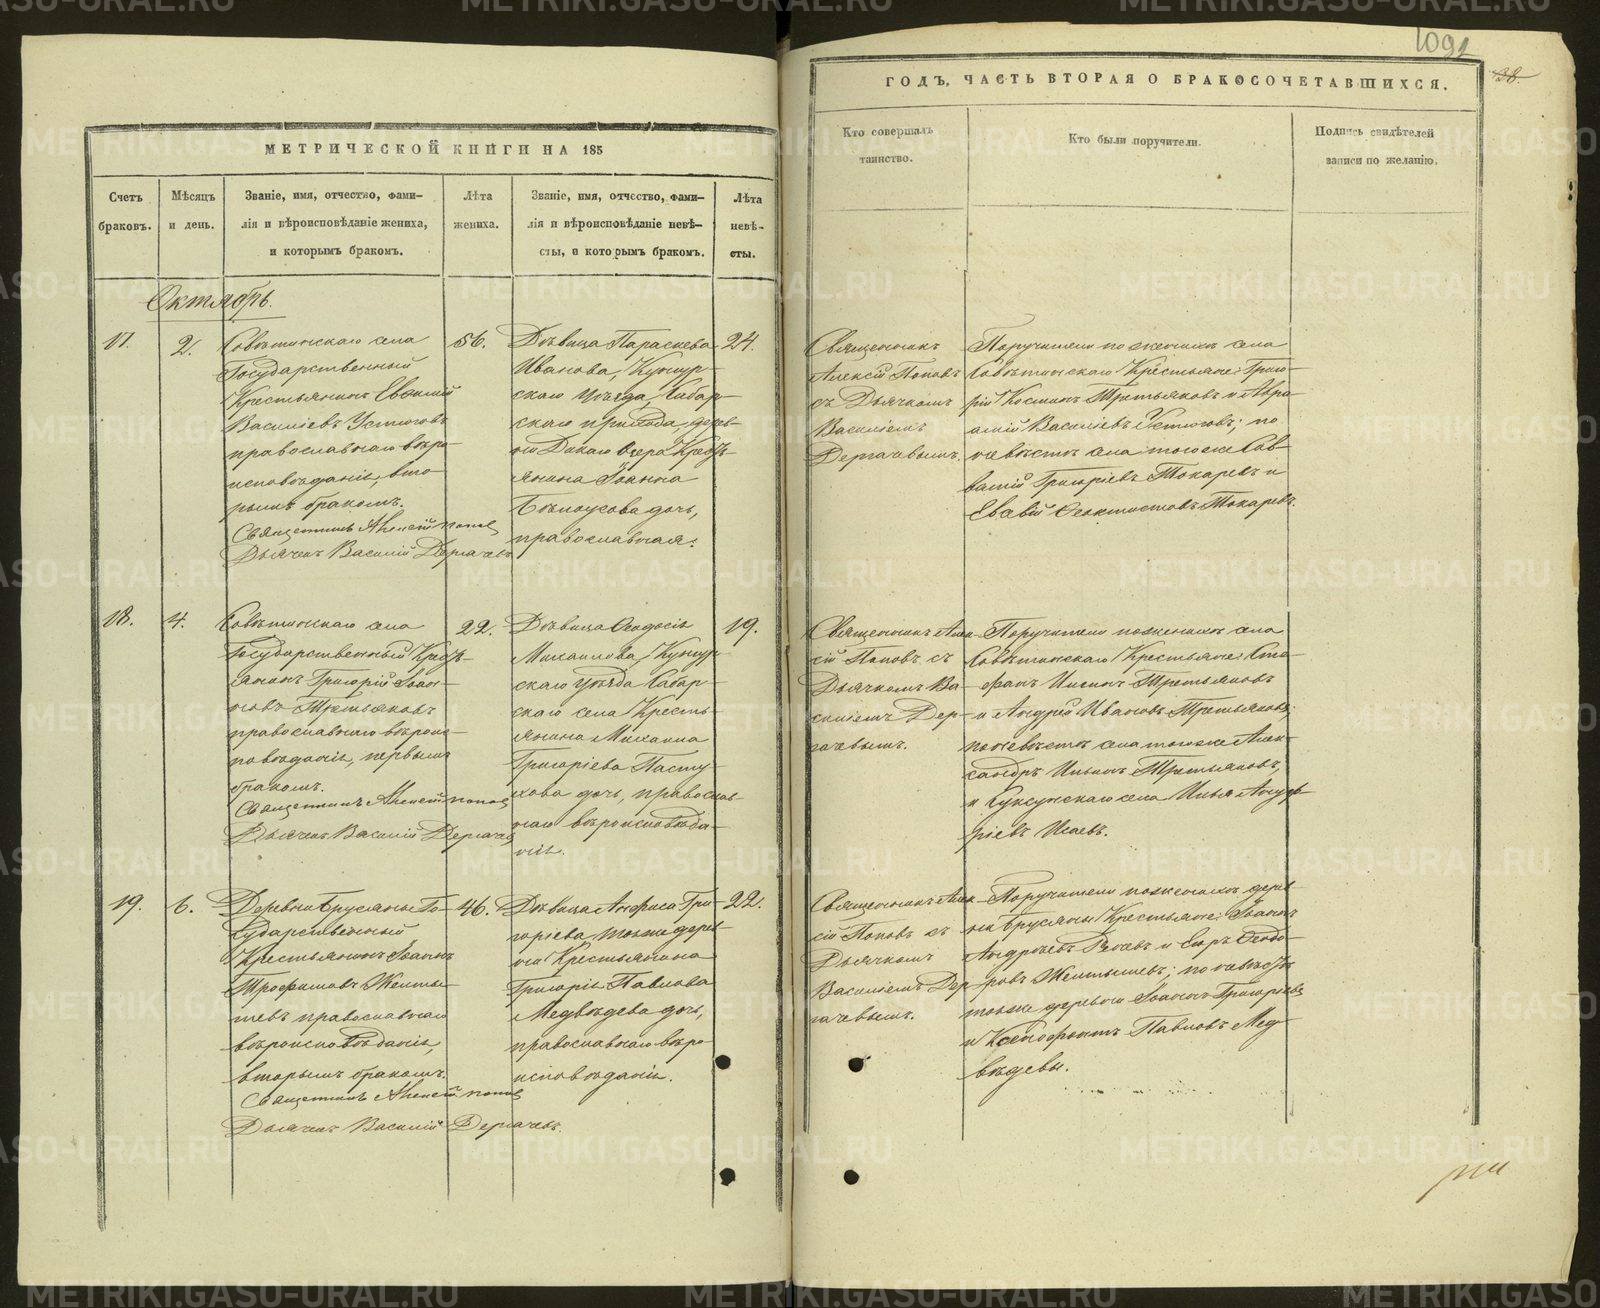 МЕТРИЧЕСКОЙ КНИГИ НА 185
Счетъ браковъ.
Мѣсяцъ и день.
Званіе, имя, отчество, фами-
лія и вѣроисповѣданіе жениха,
и которымъ бракомъ.
Лѣта жениха.
Званіе, имя, отчество, фами-
лія и вѣроисповѣданіе невѣ-
сты, и которымъ бракомъ.
Лѣта невѣ-
сты.
Октябрь.
17.
2.
Совѣтинскаго села
Государственный
Крестьянинъ Евгений
Василіевъ Устюговъ
православнаго вѣро-
исповѣданія, вто-
рымъ бракомъ.
Священникъ Алексій Поповъ
Дьячекъ Василій Дергачевъ
56.
Дѣвица Параскева
Иванова, Кунгур-
скаго Уѣзда, Сабар-
скаго прихода, дерев-
ни Дикаго Озера Кресть-
янина Іоанна
Бѣлоусова дочь,
православная.
24.
18.
4.
Совѣтинскаго села
Государственный Кресть-
янинъ Григорій Іоан-
новъ Третьяковъ
православнаго вѣроис-
повѣданія, первымъ
бракомъ.
Священникъ Алексій Поповъ
Дьячекъ Василій Дергачевъ
22.
Дѣвица Ѳеодосія
Михаилова, Кунгур-
скаго уѣзда Сабар-
скаго села Кресть-
янина Михаила
Григоріева Пасту-
хова дочь, православ-
наго вѣроисповѣда-
нія.
19.
19.
6.
Деревни Брусяны Го-
сударственный
Крестьянинъ Іоаннъ
Трофимовъ Желты-
шевъ православнаго
вѣроисповѣданія,
вторымъ бракомъ.
Священникъ Алексій Поповъ
Дьячекъ Василій Дергачевъ.
46.
Дѣвица Анфиса Гри-
горіева, тоя же дерев-
ни Крестьянина
Григорія Павлова
Медвѣдева дочь,
православнаго вѣро-
исповѣданія.
22.
1092
38.
ГОДЪ, ЧАСТЬ ВТОРАЯ О БРАКОСОЧЕТАВШИХСЯ.
Кто совершалъ
таинство.
Кто были поручители.
Подпись свидѣтелей
записи по желанію.
Священникъ
Алексій Поповъ
съ Дьячкомъ
Василіемъ
Дергачевымъ.
Поручители по женихѣ села
Совѣтинскаго Крестьяне: Григо-
рій Косминъ Третьяковъ и Авра-
амій Василіевъ Устюговъ; по
невѣстѣ села тогоже Сав-
ватій Григоріевъ Токаревъ и
Ѳеоктистовъ Токаревъ.
Священникъ Алек-
сій Поповъ съ
Дьячкомъ Ва-
силіемъ Дер-
гачевымъ.
Поручители по женихѣ села
Совѣтинскаго Крестьяне: Сте-
фанъ Ильинъ Третьяковъ
и Андрей Ивановъ Третьяковъ;
по невѣстѣ села тогоже Алек-
сандръ Ильинъ Третьяковъ,
и Суксунскаго села Илья Андре-
ріевъ Исаевъ.
Священникъ Алек-
сій Поповъ съ
Дьячкомъ
Василіемъ Дер-
гачевымъ.
Поручители по женихѣ дерев-
ни Брусяны Крестьяне: Іоаннъ
Андреевъ и Егоръ Ѳеодо-
ровъ Желтышевъ; по невѣстѣ
тоя же деревни Іоаннъ Григоріевъ
и Ксенофонтъ Павловъ Мед-
вѣдевы.
METRIKI.GASO-URAL.RU